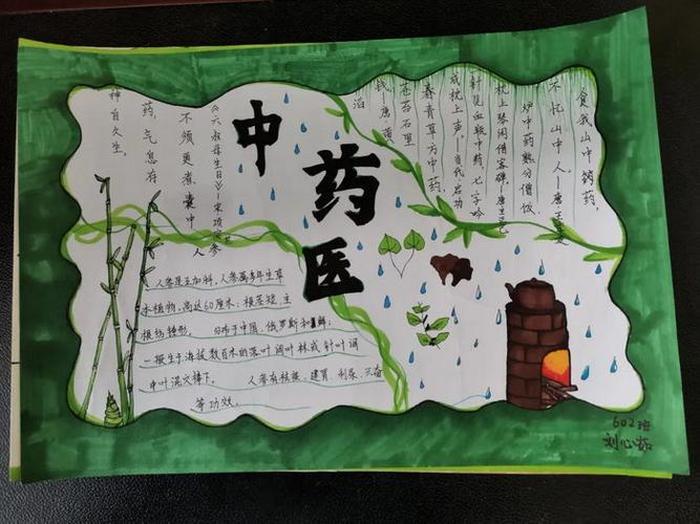 中
药
医
食我山中铸药，
不忆山中人——唐·王
炉中药熟分僧饭，
枕上琴闲借客弹——唐
针见血敬中药，七字吟
成枕上声——当代
春青草方中药，
苍石里
钱
泊
《六叔母生日》——宋项
人参
不须更煮囊中
药，气息存
神自久生。
人参是五加科，人参属多年生草
本植物，高达60厘米；根茎短，主
根纺锤形， 分布于中国、俄罗斯和朝鲜；
一般生于海拔数百米的落叶阔叶林或针叶阔
叶混交林下。 人参有核桃、健胃、利尿、兴奋
等功效。
602班
刘心茹